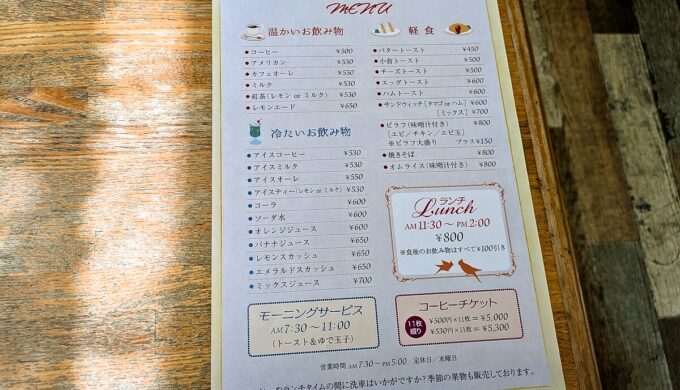 MENU
温かいお飲み物
・コーヒー ¥500
・アメリカン ¥530
・カフェオーレ ¥550
・ミルク ¥530
・紅茶（レモン or ミルク） ¥530
・レモンエード ¥650
冷たいお飲み物
・アイスコーヒー ¥530
・アイスミルク ¥530
・アイスオーレ ¥550
・アイスティー（レモン or ミルク） ¥530
・コーラ ¥600
・ソーダ水 ¥600
・オレンジジュース ¥600
・バナナジュース ¥650
・レモンスカッシュ ¥650
・エメラルドスカッシュ ¥650
・ミックスジュース ¥700
軽食
・バタートースト ¥450
・小倉トースト ¥500
・チーズトースト ¥500
・エッグトースト ¥600
・ハムトースト ¥600
・サンドウィッチ［タマゴ or ハム］ ¥600
［ミックス］ ¥700
・ピラフ（味噌汁付き） ¥800
［エビ／チキン／エビ玉］
※ピラフ大盛り プラス¥150
・焼きそば ¥800
・オムライス（味噌汁付き） ¥800
ランチ
Lunch
AM 11:30 〜 PM 2:00
¥800
※食後のお飲み物はすべて¥100引き
モーニングサービス
AM 7:30 〜 11:00
（トースト＆ゆで玉子）
コーヒーチケット
11枚綴り
¥500円×11枚 ＝ ¥5,000
¥530円×11枚 ＝ ¥5,300
営業時間 AM 7:30 〜 PM 5:00 定休日／水曜日
ランチタイムの間に洗車はいかがですか？季節の果物も販売しております。